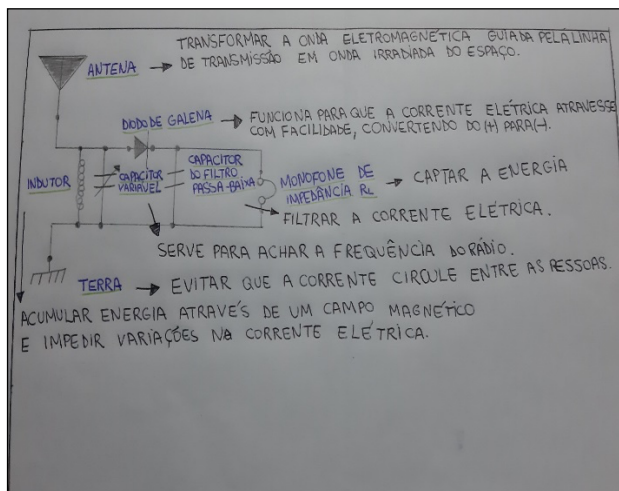 TRANSFORMAR A ONDA ELETROMAGNÉTICA GUIADA PELA LINHA
ANTENA → DE TRANSMISSÃO EM ONDA IRRADIADA DO ESPAÇO.
DIODO DE GALENA → FUNCIONA PARA QUE A CORRENTE ELÉTRICA ATRAVESSE
COM FACILIDADE, CONVERTENDO DO (+) PARA (-).
INDUTOR
CAPACITOR
VARIÁVEL
CAPACITOR
DO FILTRO
PASSA-BAIXA
MONOFONE DE
IMPEDÂNCIA RL → CAPTAR A ENERGIA
FILTRAR A CORRENTE ELÉTRICA.
SERVE PARA ACHAR A FREQUÊNCIA DO RÁDIO.
TERRA → EVITAR QUE A CORRENTE CIRCULE ENTRE AS PESSOAS.
ACUMULAR ENERGIA ATRAVÉS DE UM CAMPO MAGNÉTICO
E IMPEDIR VARIAÇÕES NA CORRENTE ELÉTRICA.